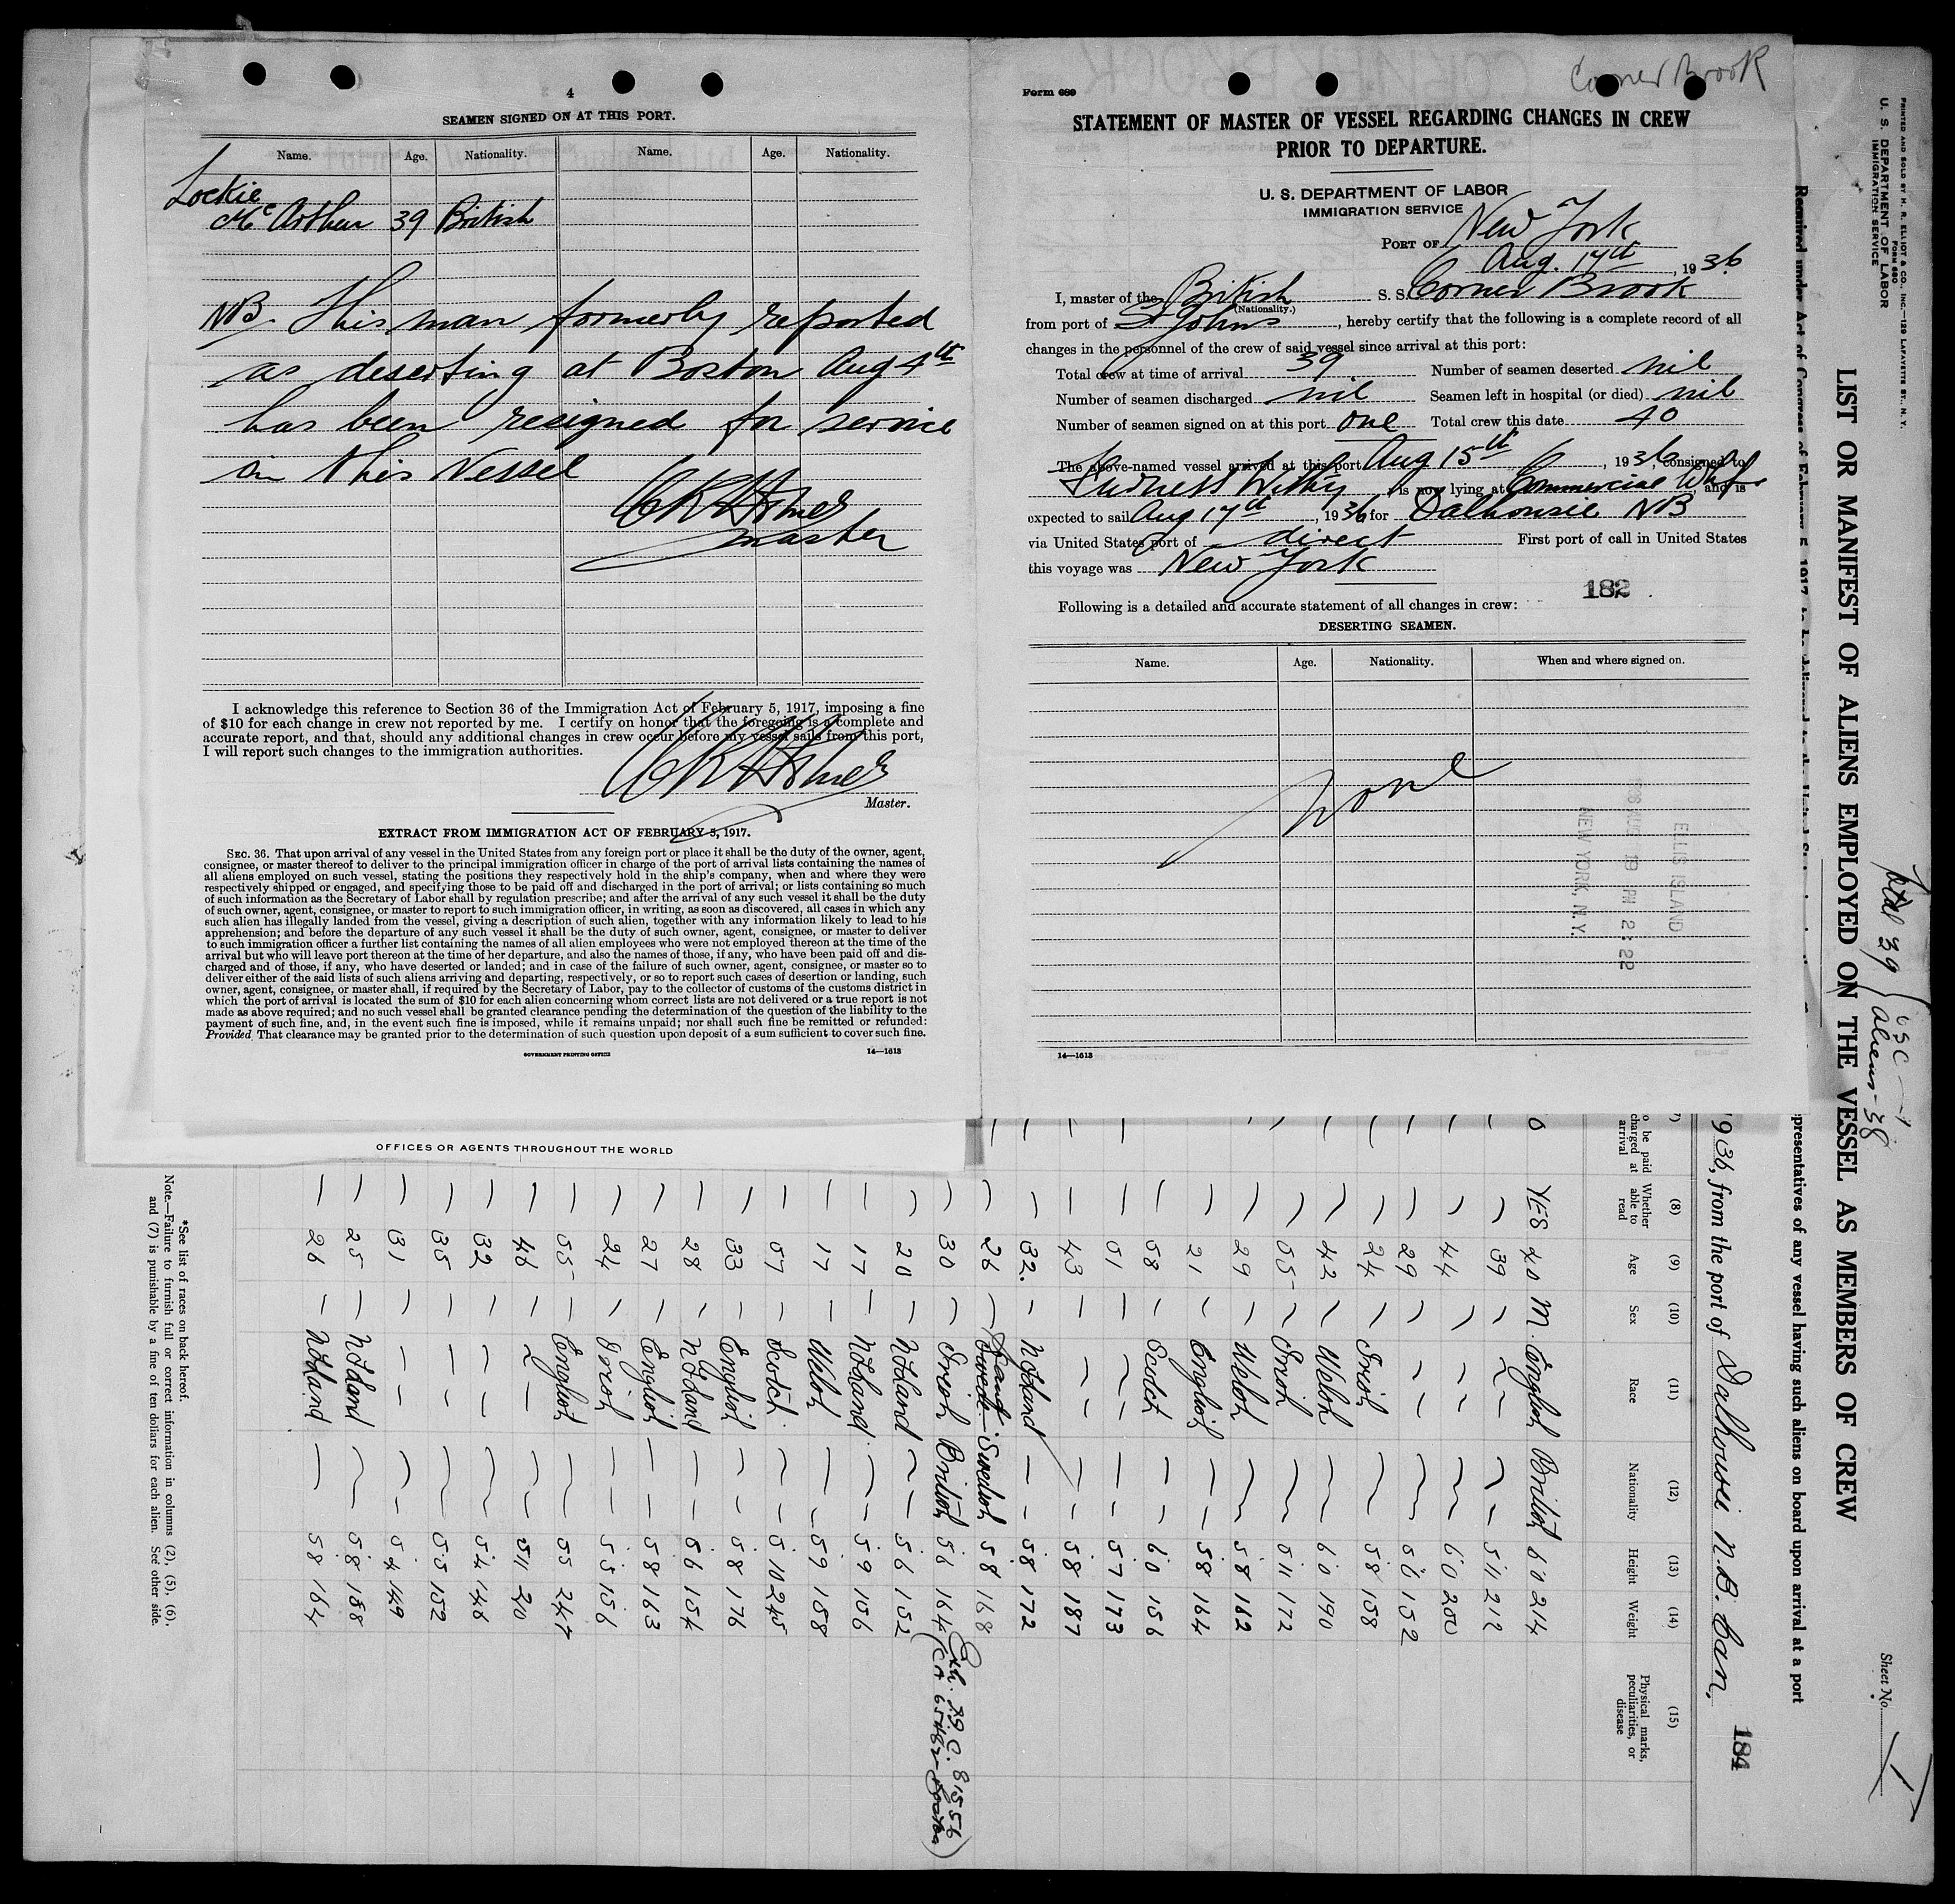 4
SEAMEN SIGNED ON AT THIS PORT.
Name. Age. Nationality. Name. Age. Nationality.
Lockie
McArthur 39 British
NB. This man formerly reported
as deserting at Boston Aug 4th
has been resigned for service
in this Vessel
master
I acknowledge this reference to Section 36 of the Immigration Act of February 5, 1917, imposing a fine
of $10 for each change in crew not reported by me. I certify on honor that the foregoing is a complete and
accurate report, and that, should any additional changes in crew occur before my vessel sails from this port,
I will report such changes to the immigration authorities.
Master.
EXTRACT FROM IMMIGRATION ACT OF FEBRUARY 5, 1917.
SEC. 36. That upon arrival of any vessel in the United States from any foreign port or place it shall be the duty of the owner, agent,
consignee, or master thereof to deliver to the principal immigration officer in charge of the port of arrival lists containing the names of
all aliens employed on such vessel, stating the positions they respectively hold in the ship's company, when and where they were
respectively shipped or engaged, and specifying those to be paid off and discharged in the port of arrival; or lists containing so much
of such information as the Secretary of Labor shall by regulation prescribe; and after the arrival of any such vessel it shall be the duty
of such owner, agent, consignee, or master to report to such immigration officer, in writing, as soon as discovered, all cases in which any
such alien has illegally landed from the vessel, giving a description of such alien, together with any information likely to lead to his
apprehension; and before the departure of any such vessel it shall be the duty of such owner, agent, consignee, or master to deliver
to such immigration officer a further list containing the names of all alien employees who were not employed thereon at the time of the
arrival but who will leave port thereon at the time of her departure, and also the names of those, if any, who have been paid off and dis-
charged and of those, if any, who have deserted or landed; and in case of the failure of such owner, agent, consignee, or master so to
deliver either of the said lists of such aliens arriving and departing, respectively, or so to report such cases of desertion or landing, such
owner, agent, consignee, or master shall, if required by the Secretary of Labor, pay to the collector of customs of the customs district in
which the port of arrival is located the sum of $10 for each alien concerning whom correct lists are not delivered or a true report is not
made as above required; and no such vessel shall be granted clearance pending the determination of the question of the liability to the
payment of such fine, and, in the event such fine is imposed, while it remains unpaid; nor shall such fine be remitted or refunded:
Provided, That clearance may be granted prior to the determination of such question upon deposit of a sum sufficient to cover such fine.
GOVERNMENT PRINTING OFFICE 14—1613
OFFICES OR AGENTS THROUGHOUT THE WORLD
Corner Brook
Form 689
STATEMENT OF MASTER OF VESSEL REGARDING CHANGES IN CREW
PRIOR TO DEPARTURE.
U. S. DEPARTMENT OF LABOR
IMMIGRATION SERVICE
PORT OF New York
Aug. 17th, 1936
I, master of the British S. S. Corner Brook
(Nationality.)
from port of St Johns, hereby certify that the following is a complete record of all
changes in the personnel of the crew of said vessel since arrival at this port:
Total crew at time of arrival 39 Number of seamen deserted nil
Number of seamen discharged nil Seamen left in hospital (or died) nil
Number of seamen signed on at this port one Total crew this date 40
The above-named vessel arrived at this port Aug 15th, 1936, consigned to
Furness Withy, is now lying at Commercial Whf, and is
expected to sail Aug 17th, 1936 for Dalhousie NB
via United States port of direct First port of call in United States
this voyage was New York
182
Following is a detailed and accurate statement of all changes in crew:
DESERTING SEAMEN.
Name. Age. Nationality. When and where signed on.
None
ELLIS ISLAND
AUG 19 PM 2:22
NEW YORK, N.Y.
14—1613
PRINTED AND SOLD BY H. R. ELLIOT & CO., INC.—129 LAFAYETTE ST., N. Y.
FORM 680
U. S. DEPARTMENT OF LABOR
IMMIGRATION SERVICE
Sheet No. 1
Total 39 USC - 1
Aliens - 38
LIST OR MANIFEST OF ALIENS EMPLOYED ON THE VESSEL AS MEMBERS OF CREW
presentatives of any vessel having such aliens on board upon arrival at a port
1936, from the port of Dalhousie N.B. Can.
184
(8) (9) (10) (11) (12) (13) (14) (15)
o be paid
charged at
arrival
Whether
able to
read
Age Sex Race Nationality Height Weight
Physical marks,
peculiarities, or
disease
YES 40 M. English British 6 0 214
39 5 11 212
44 6 0 200
29 5 6 152
24 Irish 5 8 158
42 Welsh 6 0 190
55 Irish 5 11 172
29 Welsh 5 8 162
21 English 5 8 164
58 Scotch 6 0 156
51 5 7 173
43 5 8 187
32 Nfland 5 8 172
26 Swedish 5 8 168
30 Irish British 5 6 164
20 Nfland 5 6 152
17 Nfland 5 9 156
17 Welsh 5 9 158
57 Scotch 5 10 245
33 English 5 8 176
28 Nfland 5 6 154
27 English 5 8 163
24 Irish 5 5 156
55 English 5 5 247
46 5 11
32 5 4 146
35 5 5 152
31 5 4 149
25 Nfland 5 8 188
26 Nfland 5 8 164
*See list of races on back hereof.
Note.—Failure to furnish full or correct information in columns (2), (5), (6),
and (7) is punishable by a fine of ten dollars for each alien. See other side.